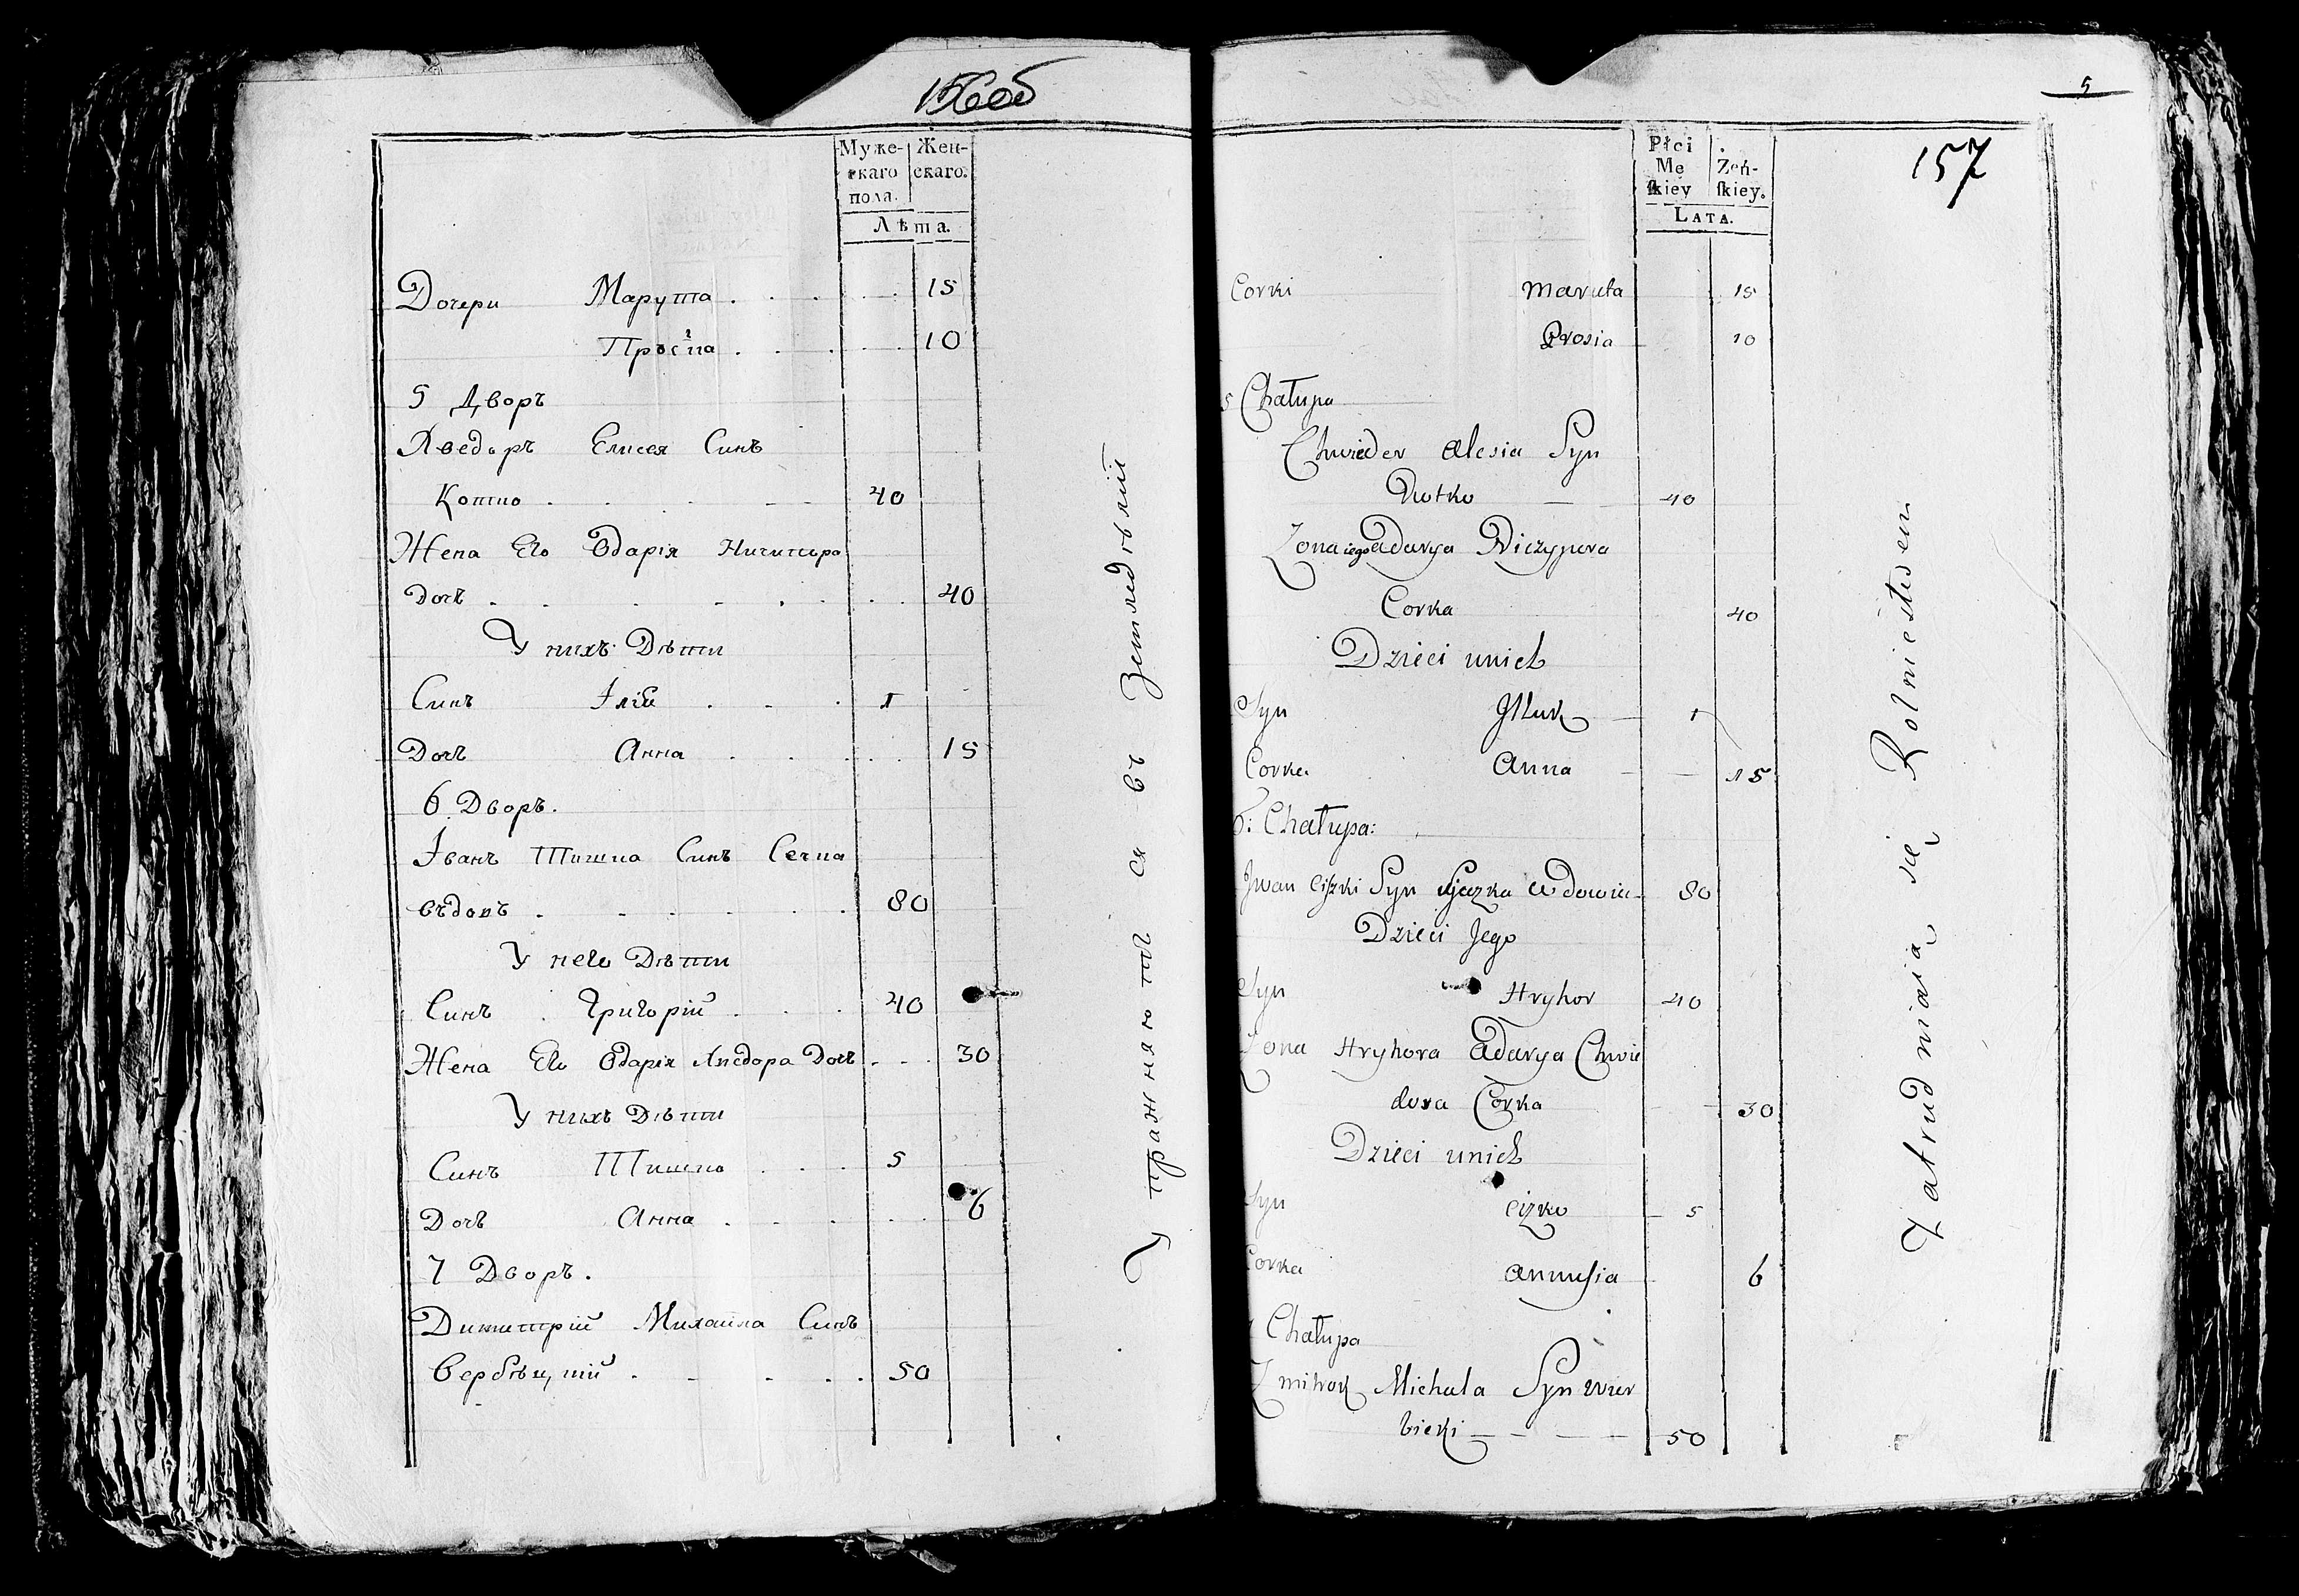 156об
Муже-
скаго
пола.
Жен-
скаго.
Лѣта.
Дочери Марута . . . . . 15
Просіа . . . . . 10
5 Дворъ
Хведоръ Елисея Синъ
Котко . . . . 40
Жена Его Одарія Ничипора
Дочь . . . . . . . 40
У нихъ Дѣти
Синъ Ілій . . . 1
Дочь Анна . . . . . 15
6 Дворъ.
Іванъ Тишка Синъ
вѣдовъ . . . . . . 80
У него Дѣти
Синъ Григорій . . . 40
Жена Его Одарія Хведора Дочь . . . 30
У нихъ Дѣти
Синъ Тишко . . . 5
Дочь Анна . . . . . 6
7 Дворъ.
Димитрій Михайла Синъ
Вербѣцкій . . . . . 50
Упражняются въ Земледѣліи
5
157
Płci
Mę
skiey
Żeń-
skiey.
LATA.
Corki Maruta 15
Prosia 10
5 Chałupa
Chwieder Alesia Syn
Kotko — 40
Zona iego Adarya Niczypora
Corka 40
Dzieci unich
Syn Jlluk — 1
Corka Anna — — 15
6: Chałupa:
Jwan Ciszki Syn Wdowiec 80
Dzieci Jego
Syn Hryhor 40
Zona Hryhora Adarya Chwie
dora Corka — — 30
Dzieci unich
Syn Ciszko — 5
Corka Annusia 6
Chałupa
Zmitrok Michała Syn Wier
bicki — — — — 50
Zatrudniaią się Rolnictwem